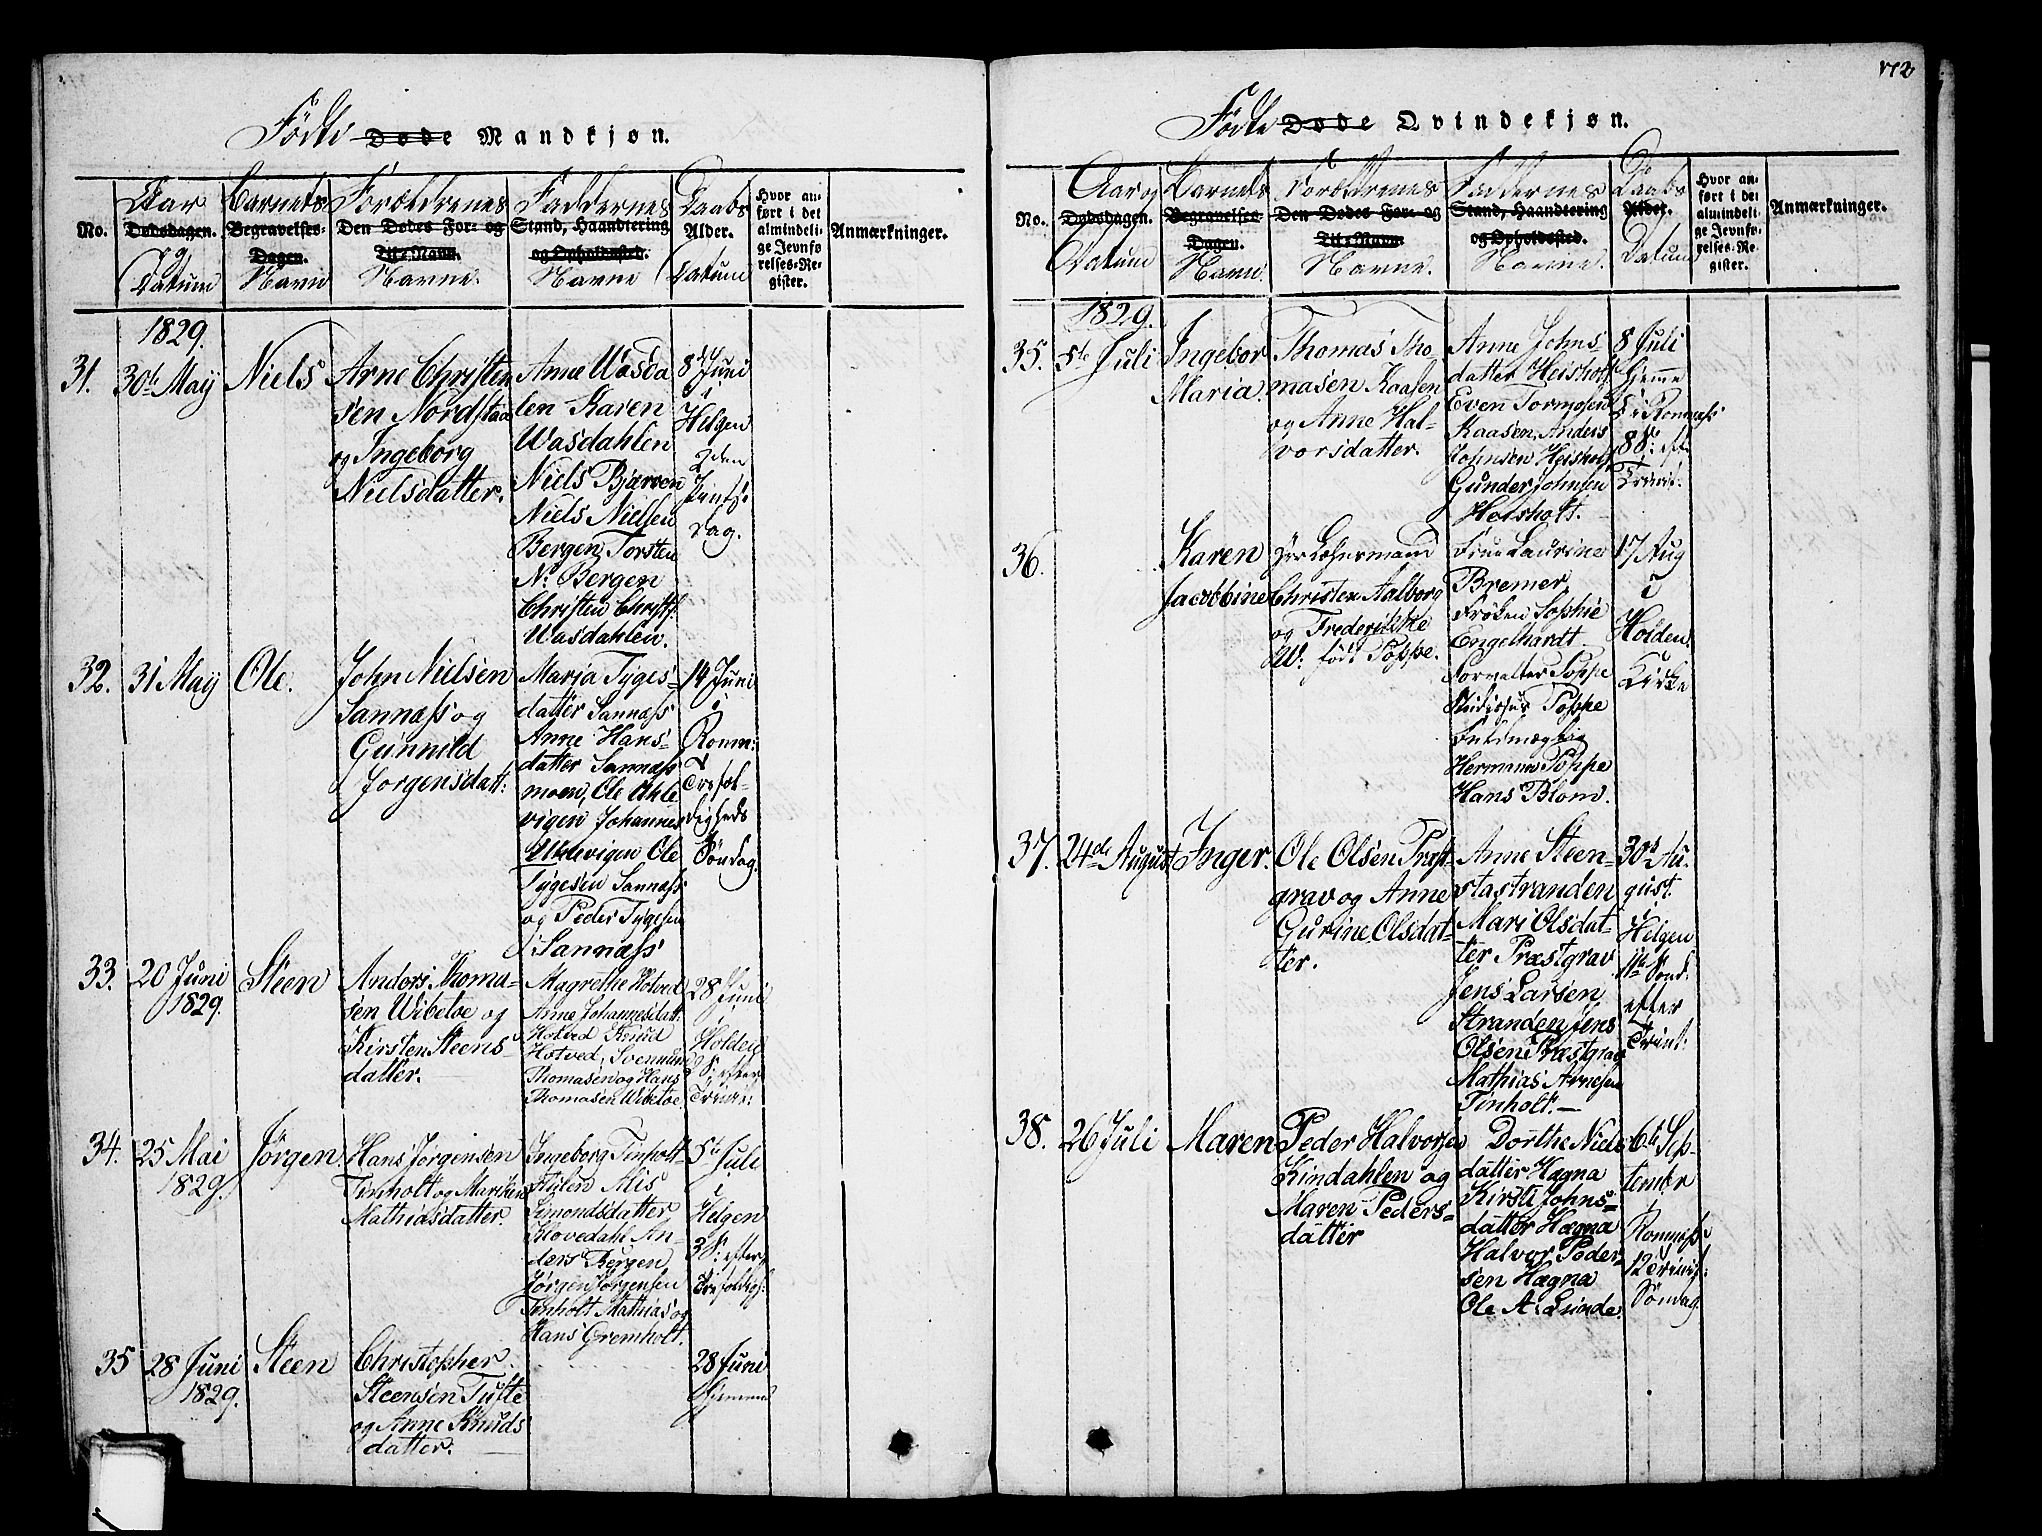 Födte Døde Mandkjøn.
No.
Aar
Dødsdagen.
og
Datum
Barnets
Begravelses-
Dagen.
Navn
Forældrenes
Den Dødes For- og
Til-Navn.
Navne.
Faddernes
Stand, Haandtering
og Opholdssted.
Navne
Daabs
Alder.
Datum
Hvor an-
ført i det
almindeli-
ge Jevnfø-
relses-Re-
gister.
Anmærkninger.
1829.
31.
30te May
Niels
Arne Christen
sen Nordstaa
og Ingeborg
Nielsdatter.
Anne Wasda
len Karen
Wasdahlen
Niels Bjærven
Niels Nielsen
Bergen, Torsten
N: Bergen
Christen Christs:
Wasdahlen.
8de Juni
i
Helgen
2den
Pints:
dag.
32.
31 May
Ole.
John Nielsen
Sannæss og
Gunnild
Jorgensdatt:
Maria Tyges-
datter Sannæss
Anne Hans-
datter Sannæss
moen, Ole Uhle
vigen Johannes
Uhlevigen, Ole
Tygesen Sannæss
og Peder Tygesen
Sannæss
14 Juni
i
Romn:
Trefol-
digheds
Söndag.
33.
20 Juni
1829.
Steen
Anders Thoma-
sen Wibetoe og
Kirsten Steens-
datter.
Magrethe Hotved
Anne Johannesdatt.
Hotved Knud
Hotved, Svennum
Thomasen og Hans
Thomasen Wibetoe.
28 Juni
i
Holden
2 S: efter
Trinit:
34.
25 Mai
1829.
Jörgen
Hans Jørgensen
Tinholt og Mariken
Mathiasdatter.
Ingeborg Tinholt-
stulen Mis
Simondsdatter
Khovedahl An-
ders Bergen
Jørgen Jørgensen
Tinholt Mathias og
Hans Gremholt.
5te Juli
i
Helgen
3 S: efter
Trefoldigh:
35
28 Juni
1829.
Steen
Christopher
Steensen Tufte
og Anne Knuds
datter.
28 Juni
Hjemme
172
Födte Døde Qvindekjøn.
No.
Aar og
Dødsdagen.
Datum
Barnets
Begravelses-
Dagen.
Navn
Forældrenes
Den Dødes For- og
Til-Navn.
Navne.
Faddernes
Stand, Haandtering
og Opholdssted.
Navne.
Daabs
Alder.
Datum
Hvor an-
ført i det
almindeli-
ge Jevnfø-
relses-Re-
gister.
Anmærkninger.
1829.
35.
5te Juli
Ingebor
Maria.
Thomas Tho-
masen Kaasen
og Anne Hal-
vorsdatter.
Anne Johns-
datter Heisholt
Even Tormosen
Kaasen, Anders
Johnsen Heisholt
Gunder Johnsen
Heisholt.
8 Juli
Hjemme
i Romnæss
8 S: eft:
Trinit:
36.
Karen
Jacobbine
Christen Aalborg
og Frederikke
W: født Poppe.
Frue Laurine
Bremer
Frøken Sophie
Engelhardt
Forvalter Poppe
Poppe
Hermann Poppe
Hans Blom.
17 Aug
i
Holden
Kirke
37.
24de August
Inger.
Ole Olsen Præst-
grav og Anne
Gurine Olsdat-
ter.
Anne Steen-
stastranden
Mari Olsdat-
ter Præstgrav
Jens Larsen
Stranden, Jens
Olsen Præstgrav
Mathias Arnesen
Tinholt.
30te Au-
gust.
i
Helgen
11te Sönd:
efter
Trinit:
38.
26 Juli
Maren
Peder Halvorsen
Kindahlen og
Maren Peders-
datter
Dorthe Niels
datter Hægna
Kirsti Johns-
datter Hægna
Halvor Peder-
sen Hægna
Ole A: Lunde.
6te Sep-
tember
i
Romnæss
12 Trinit:
Söndag.